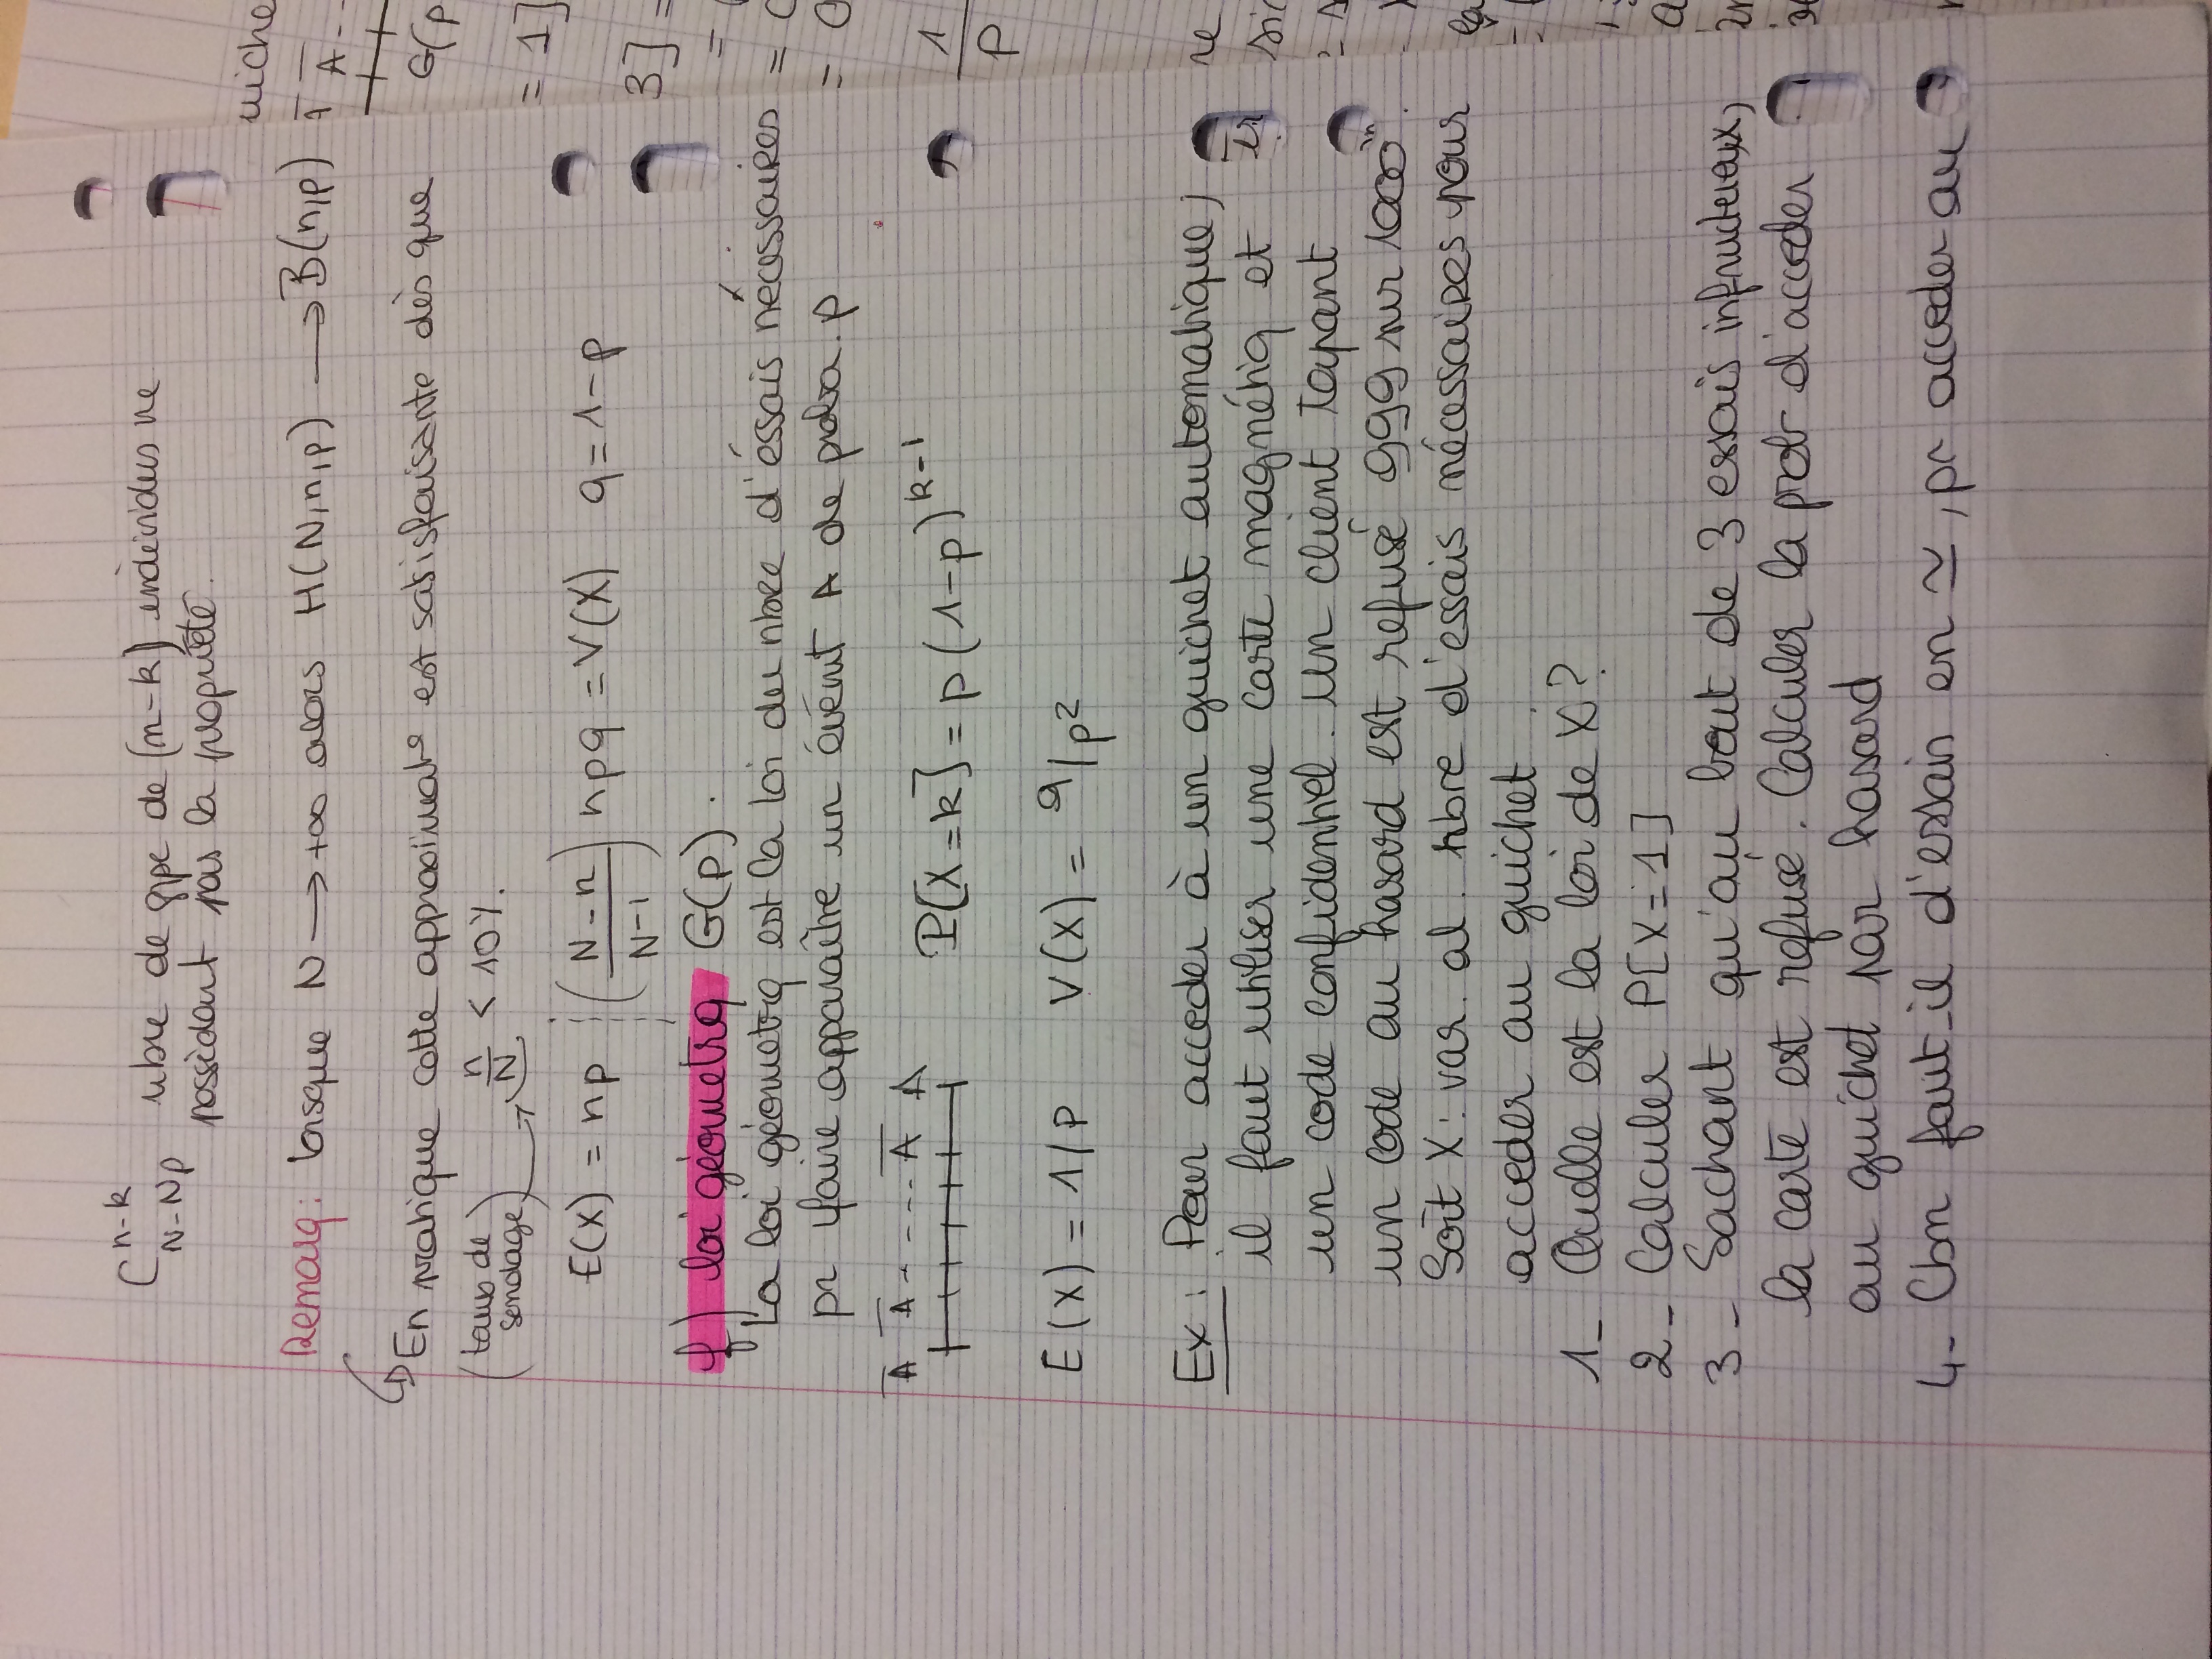 C^{n-k}_{N-Np} nbre de gpe de (n-k) individus ne
possédant pas la propriété.
Remarq: lorsque N → +∞ alors H(N,n,p) → B(n,p)
En pratique cette approximat° est satisfaisante dès que
(taux de sondage) → n/N < 10%.
E(X) = np ; ((N-n)/(N-1)) npq = V(X) q = 1-p
f) loi géometriq G(p).
La loi géometriq est la loi du nbre d'éssais nécessaires
pr faire apparaître un évènt A de proba. p
A̅ A̅ - - - - A̅ A
P[X=k] = p(1-p)^{k-1}
E(X) = 1/p V(X) = q/p²
Ex: Pour acceder à un guichet automatique,
il faut utiliser une carte magnétiq et
un code confidentiel. Un client tapant
un code au hasard est refusé 999 sur 1000
Soit X: var. al. nbre d'essais nécessaires pour
acceder au guichet.
1_ Quelle est la loi de X?
2_ Calculer P[X=1]
3_ Sachant qu'au bout de 3 essais infructueux,
la carte est refusé. Calculer la prob d'acceder
au guichet par hasard
4- Cbn faut-il d'essain en ≃, pr acceder au
uiche
A̅ - -
G(p
= 1]
3] =
=
=
=
1/p